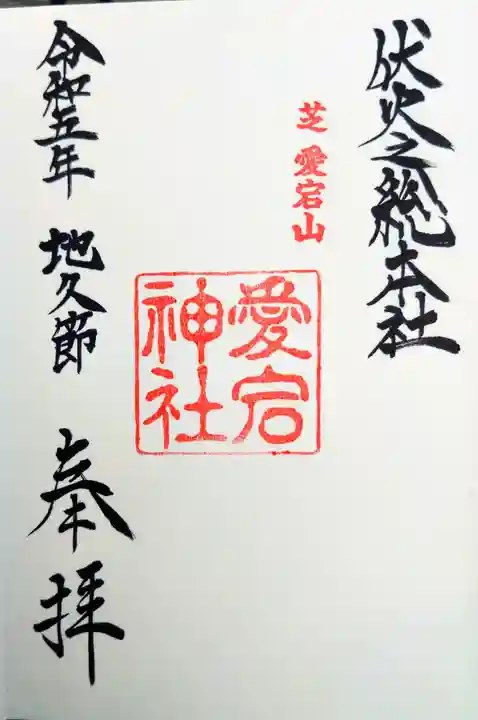 伏火之総本社
芝 愛宕山
愛宕
神社
令和五年 地久節 奉拝